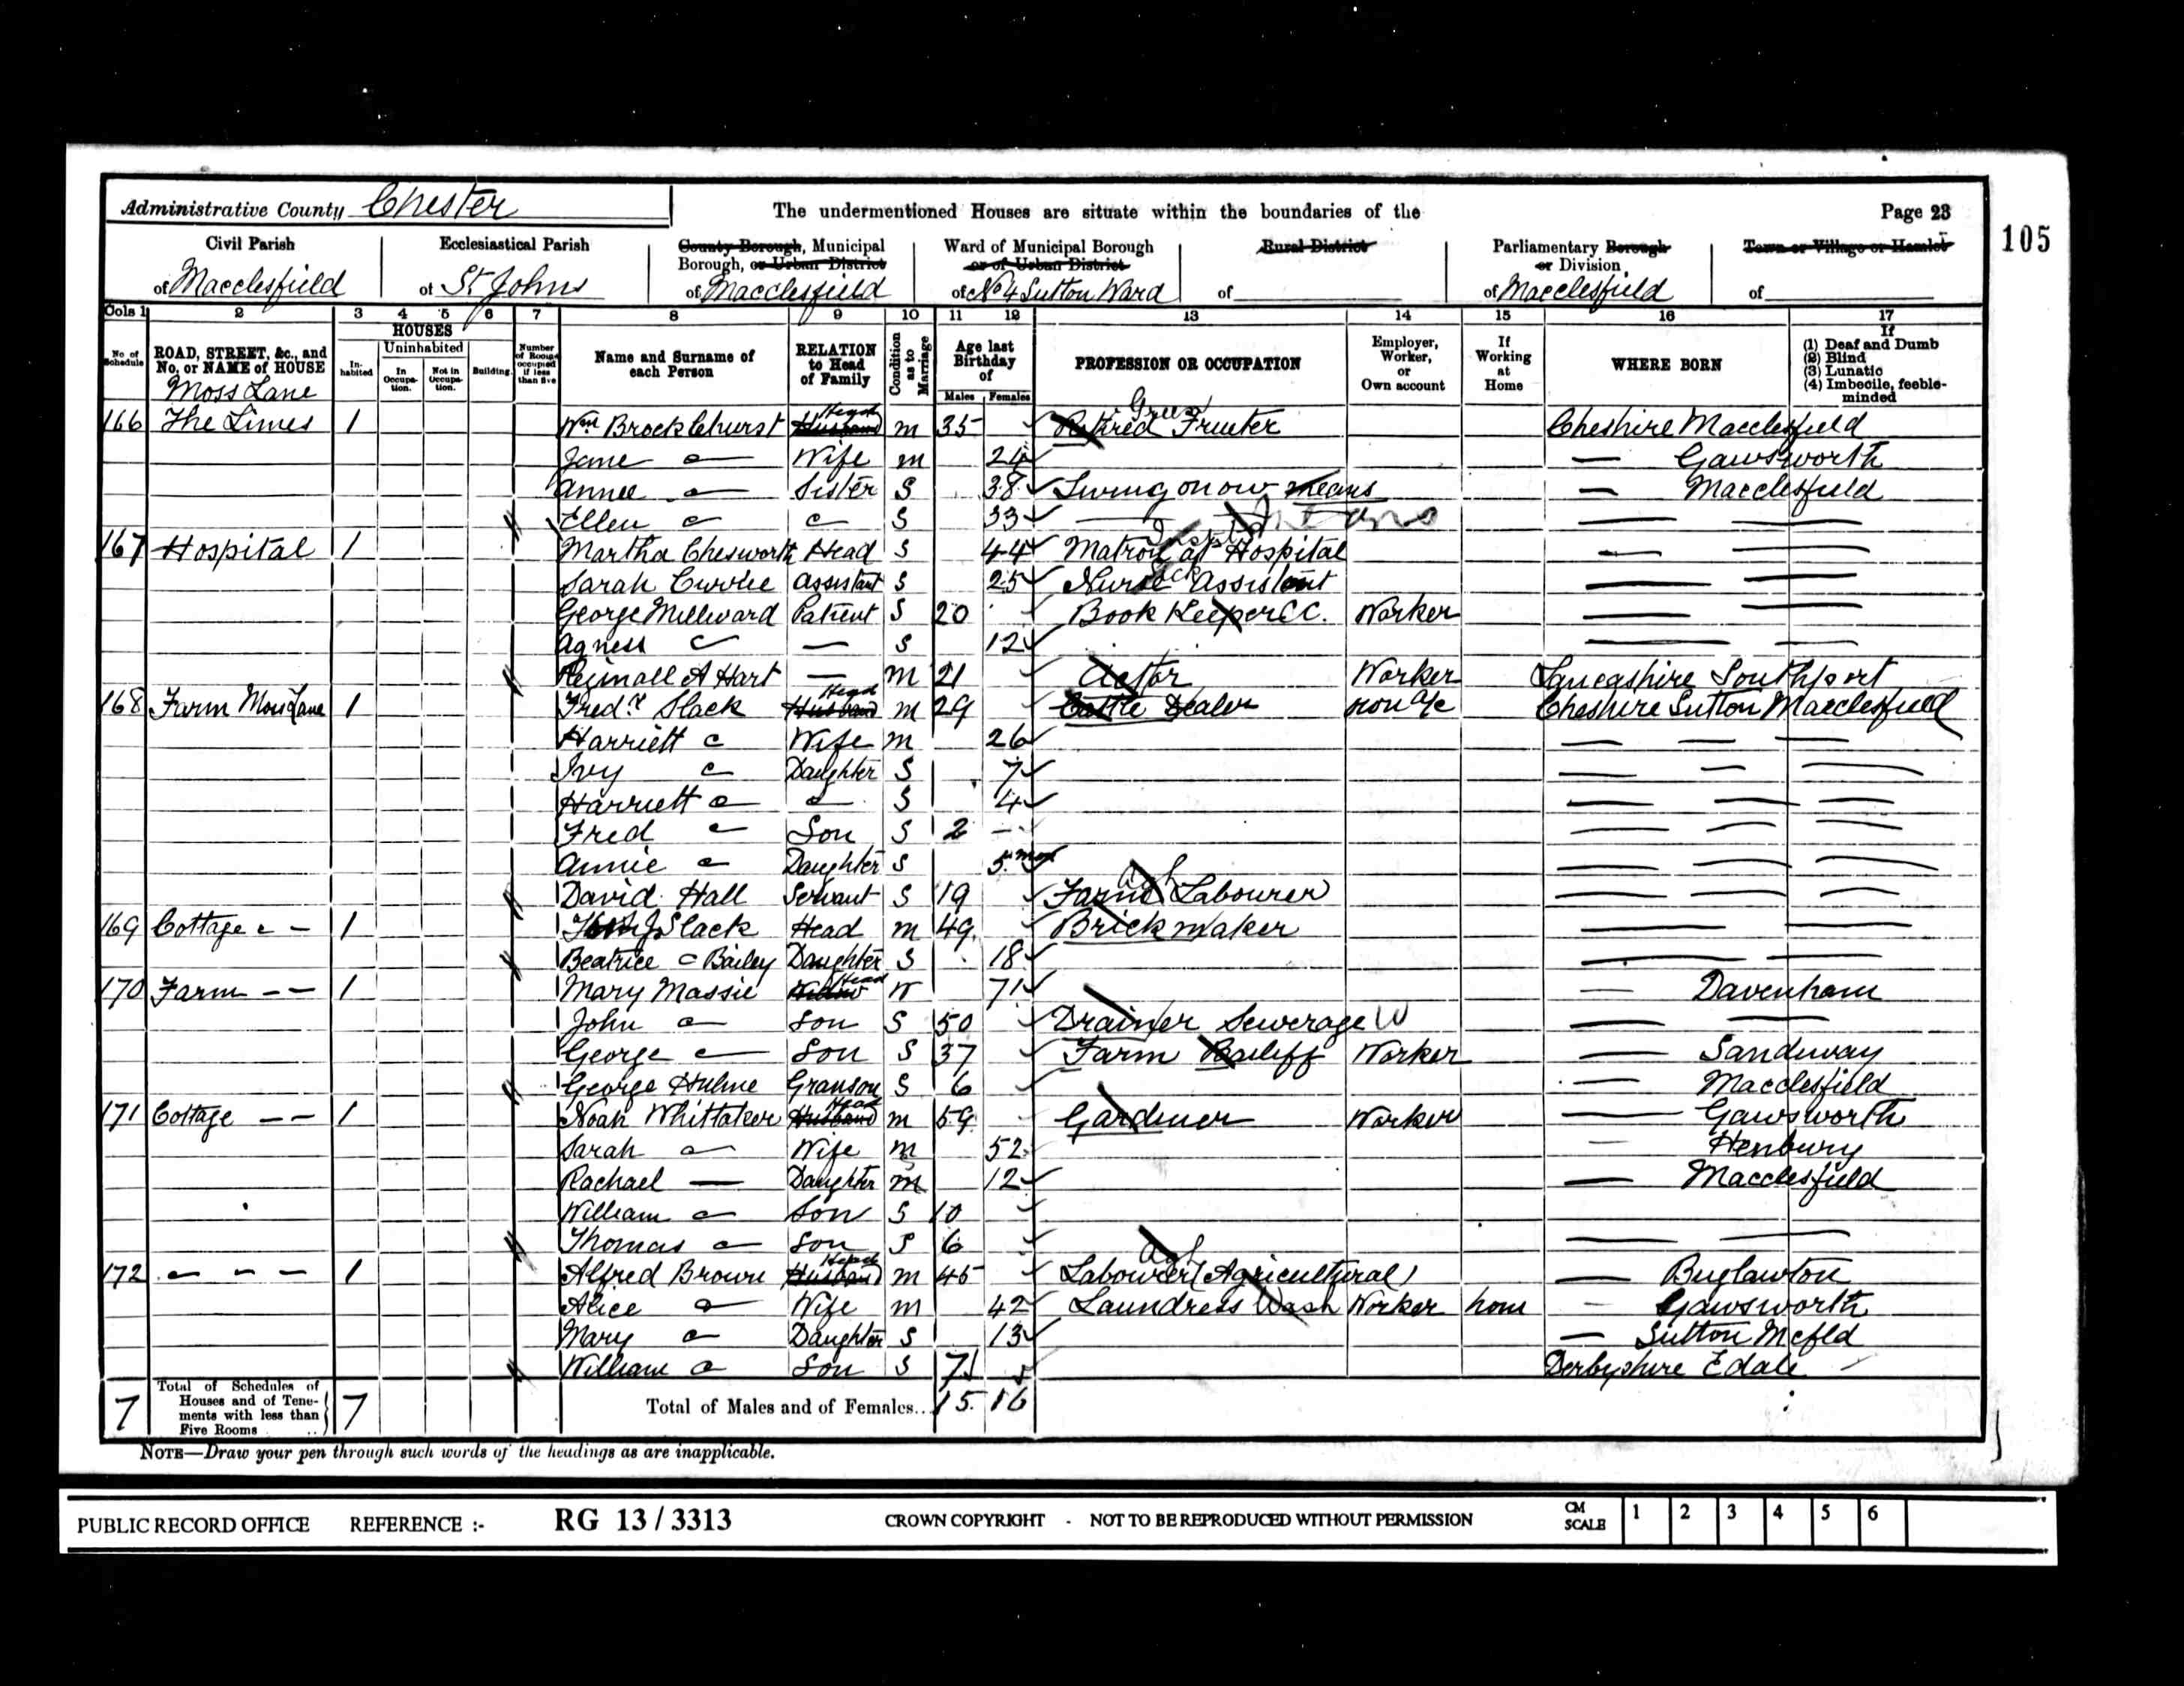 Administrative County Chester The undermentioned Houses are situate within the boundaries of the Page 23
105
Civil Parish of Macclesfield
Ecclesiastical Parish of St Johns
County Borough, Municipal Borough, or Urban District of Macclesfield
Ward of Municipal Borough or of Urban District of No 4 Sutton Ward
Rural District of
Parliamentary Borough or Division of Macclesfield
Town or Village or Hamlet of
Cols 1 2 3 4 5 6 7 8 9 10 11 12 13 14 15 16 17
No of Schedule
ROAD, STREET, &c., and No. or NAME of HOUSE
HOUSES
Inhabited
Uninhabited
In Occupation.
Not in Occupation.
Building.
Number of Rooms occupied if less than five
Name and Surname of each Person
RELATION to Head of Family
Condition as to Marriage
Age last Birthday of
Males Females
PROFESSION OR OCCUPATION
Employer, Worker, or Own account
If Working at Home
WHERE BORN
If (1) Deaf and Dumb (2) Blind (3) Lunatic (4) Imbecile, feeble-minded
Moss Lane
166 The Limes 1 Wm Brocklehurst Husband Head m 35 Retired Fruiter Cheshire Macclesfield
Jane Wife m 24 — Gawsworth
Annie Sister S 38 Living on own means — Macclesfield
Ellen S 33 — —
167 Hospital 1 Martha Chesworth Head S 44 Matron at Hospital — —
Sarah Assistant S 25 Nurse Assistant — —
George Millward Patient S 20 Book Keeper CC. Worker — —
Agness — S 12 — —
A Hart — m 21 Actor Worker Lancashire Southport
168 Farm Moss Lane 1 Fredk Slack Husband Head m 29 Cattle Dealer own a/c Cheshire Sutton Macclesfield
Harriett Wife m 26 — — —
Ivy Daughter S 7 — — —
Harriett S 4 — — —
Fred Son S 2 — — —
Annie Daughter S 5 mos — — —
David Hall Servant S 19 Farm Labourer agl — — —
169 Cottage — 1 Slack Head m 49 Brick maker — —
Beatrice Bailey Daughter S 18 — —
170 Farm — — 1 Mary Massie Widow Head W 71 — Davenham
John Son S 50 Drainer Sewerage W — —
George Son S 37 Farm Bailiff Worker — Sandiway
George Hulme Granson S 6 — Macclesfield
171 Cottage — — 1 Noah Whittaker Husband Head m 59 Gardener Worker — Gawsworth
Sarah Wife m 52 — Henbury
Rachael — Daughter m S 12 — Macclesfield
William Son S 10
Thomas Son S 6 — —
172 — — — 1 Alfred Brown Husband Head m 45 Labourer (Agricultural) agl — Buglawton
Alice Wife m 42 Laundress Wash Worker home — Gawsworth
Mary Daughter S 13 — Sutton Mcfld
William Son S 7 Derbyshire Edale
7 Total of Schedules of Houses and of Tenements with less than Five Rooms .. 7 Total of Males and of Females.. 15 16
NOTE—Draw your pen through such words of the headings as are inapplicable.
PUBLIC RECORD OFFICE REFERENCE :- RG 13 / 3313 CROWN COPYRIGHT - NOT TO BE REPRODUCED WITHOUT PERMISSION CM SCALE 1 2 3 4 5 6